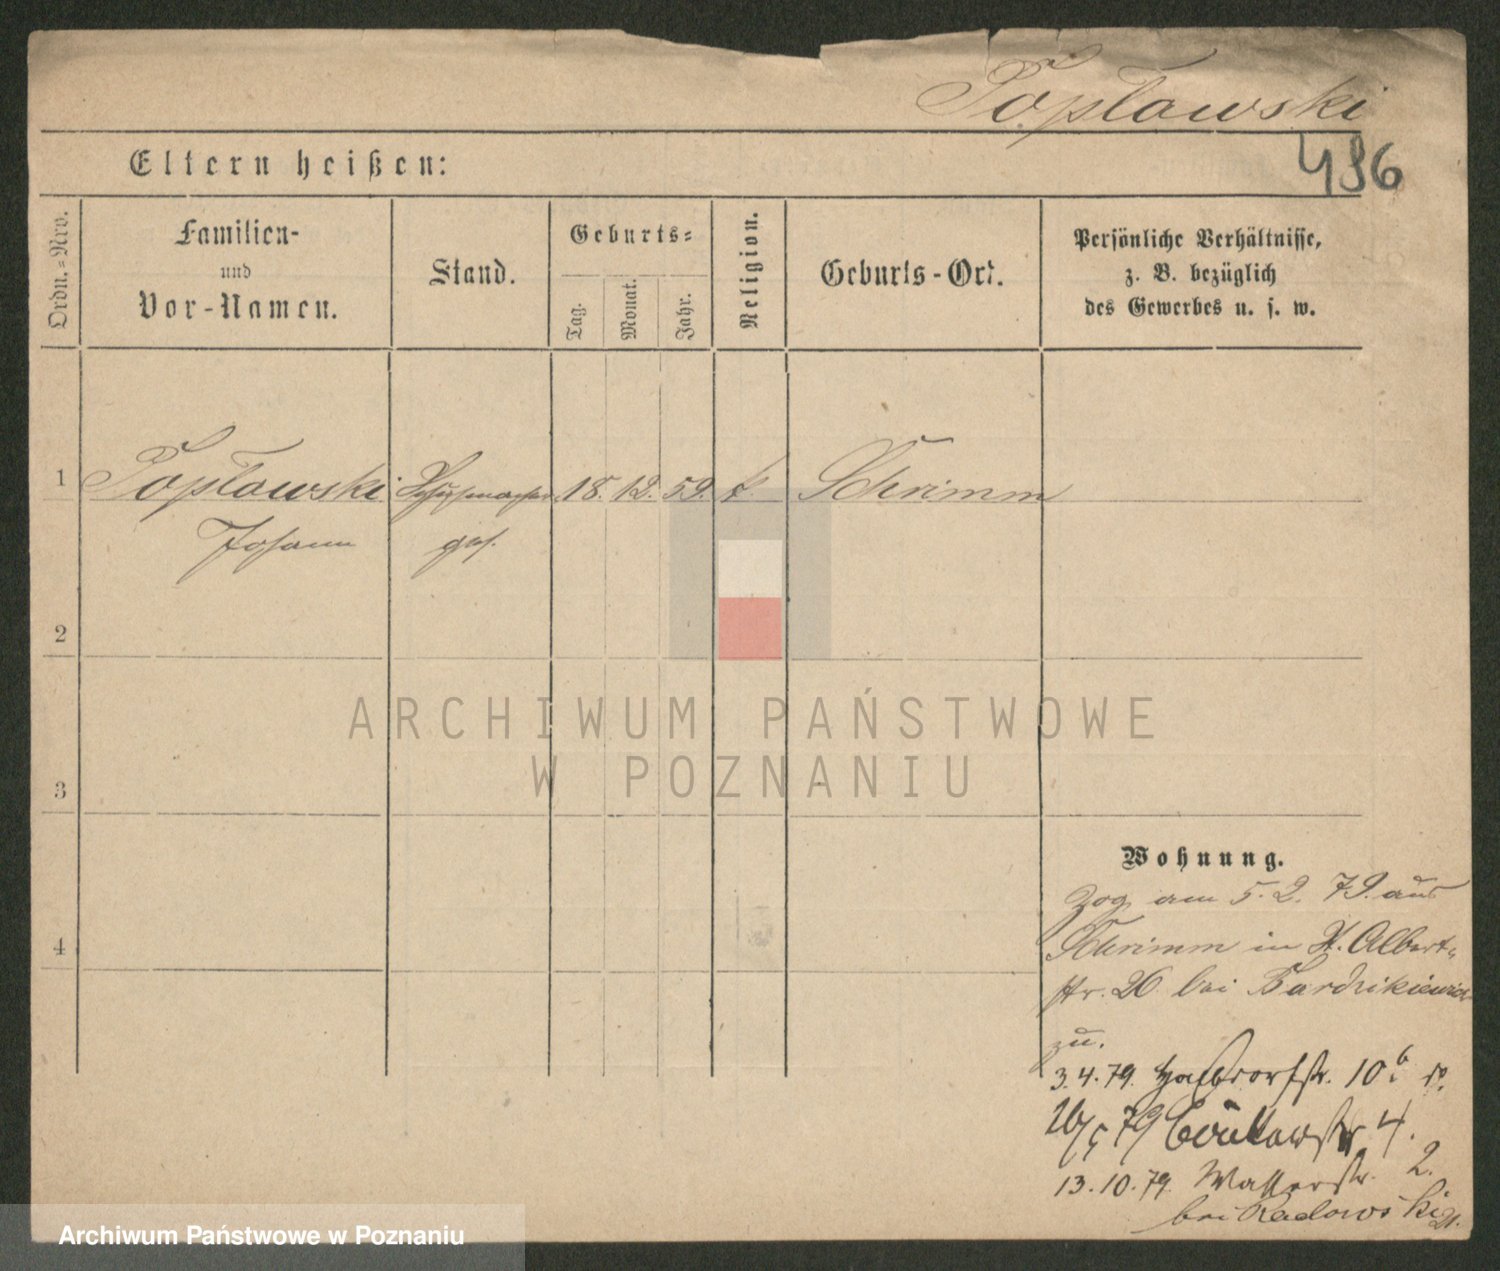 Popławski
496
Eltern heißen:
Ordn.=Nro.
Familien-
und
Vor-Namen.
Stand.
Geburts=
Tag.
Monat.
Jahr.
Religion.
Geburts-Ort.
Persönliche Verhältnisse,
z. B. bezüglich
des Gewerbes u. s. w.
1 Popławski Schuhmacher 18. 12. 59. k. Schrimm
Johann ges.
2
ARCHIWUM PAŃSTWOWE
W POZNANIU
3
Wohnung.
zog am 5. 2. 79. aus
4
Schrimm in St. Albert=
str. 26 bei
zu.
3.4.79. Halbdorfstr. 10
79 4.
13.10.79. Wasserstr. 2.
bei Radowski
Archiwum Państwowe w Poznaniu